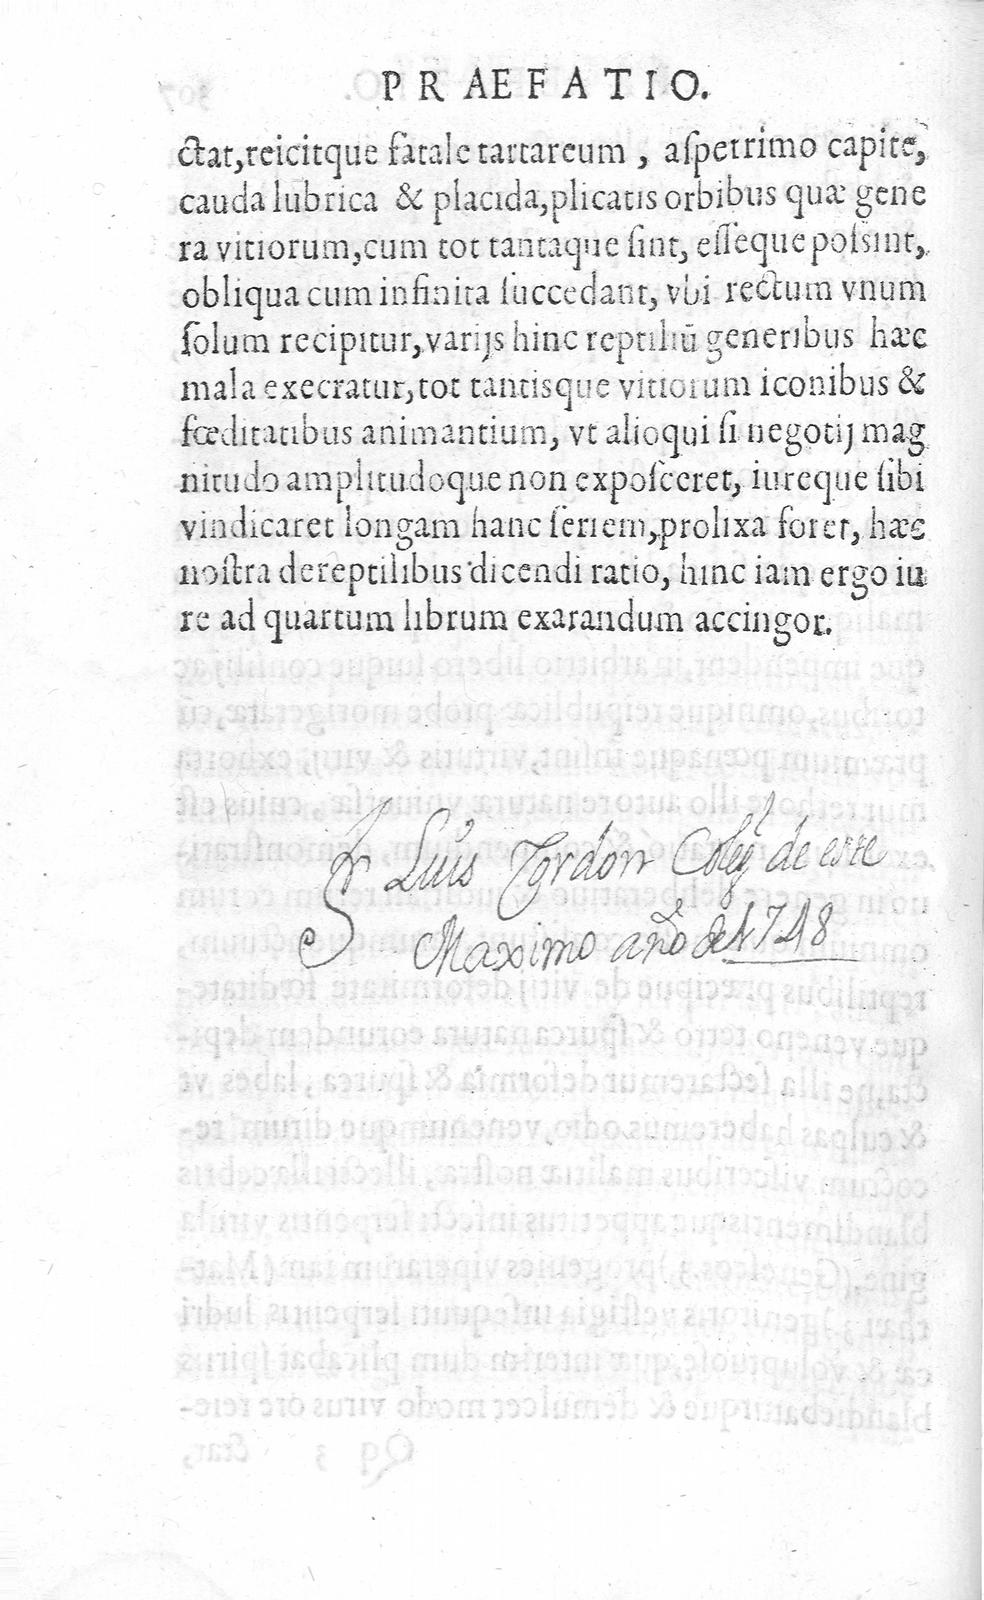 PRAEFATIO.
ctat, reicitque fatale tartareum, aſpetrimo capite,
cauda lubrica & placida, plicatis orbibus quæ gene
ra vitiorum, cum tot tantaque ſint, eſſeque poſsint,
obliqua cum infinita ſuccedant, vbi rectum vnum
ſolum recipitur, varijs hinc reptiliū generibus hæc
mala execratur, tot tantisque vitiorum iconibus &
fœditatibus animantium, vt alioqui ſi negotij mag
nitudo amplitudoque non expoſceret, iureque ſibi
vindicaret longam hanc ſeriem, prolixa foret, hæc
noſtra de reptilibus dicendi ratio, hinc iam ergo iu
re ad quartum librum exarandum accingor.
Fr Luis Tordon Coleg de este
Maximo año de 1748